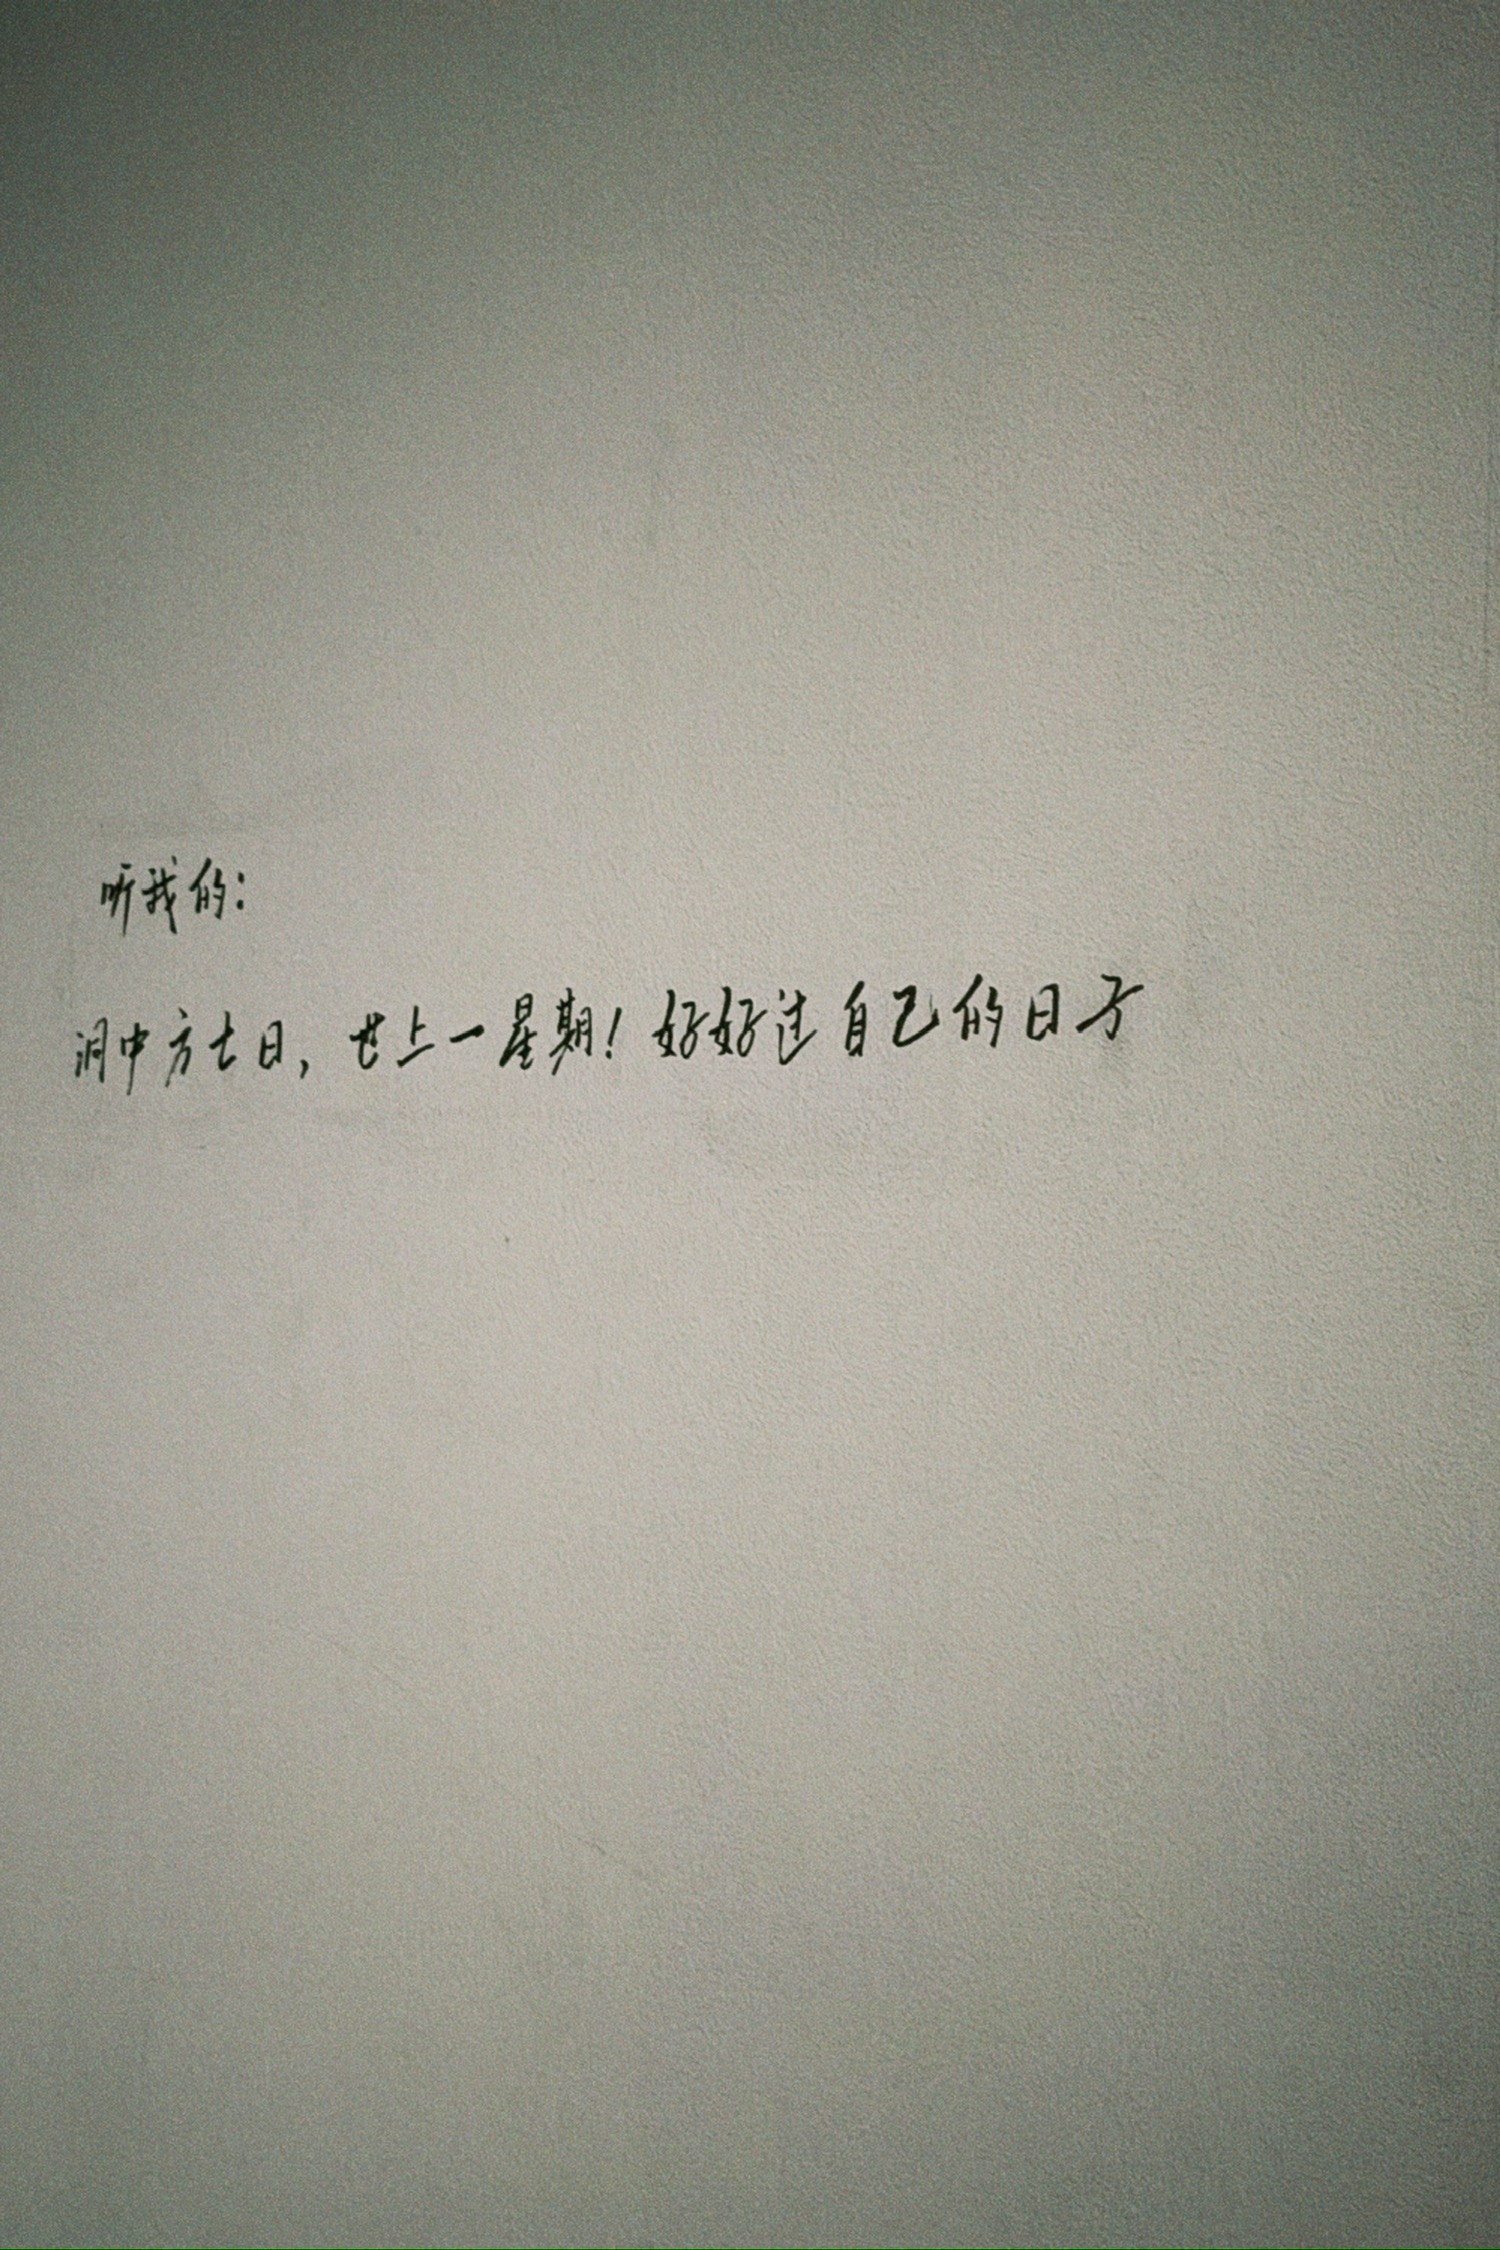 听我的：
洞中方七日，世上一星期！好好过自己的日子